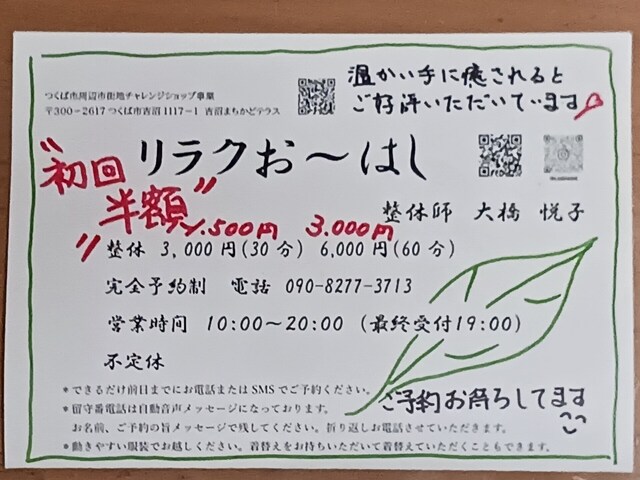 つくば市周辺市街地チャレンジショップ事業
〒300-2617 つくば市吉沼1117-1 吉沼まちかどテラス
温かい手に癒されると
ご好評いただいています
リラクお～はし
"初回
半額"
整体師 大橋 悦子
1.500円 3.000円
整体 3,000円(30分) 6,000円(60分)
完全予約制 電話 090-8277-3713
営業時間 10:00～20:00 (最終受付19:00)
不定休
＊できるだけ前日までにお電話またはSMSでご予約ください。
＊留守番電話は自動音声メッセージになっております。
お名前、ご予約の旨メッセージで残してください。折り返しお電話させていただきます。
＊動きやすい服装でお越しください。着替えをお持ちいただいて着替えていただくこともできます。
ご予約お待ちしてます